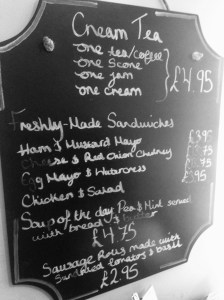 Cream Tea
one tea/coffee
one scone
one jam
one cream
£4.95
Freshly-Made Sandwiches
Ham & Mustard Mayo £3.95
Cheese & Red Onion Chutney
Egg Mayo & Watercress £2.95
Chicken & Salad
Soup of the day Pea & Mint served
with bread & butter
£4.75
Sausage Rolls made with
Sundried tomatoes & basil
£2.95